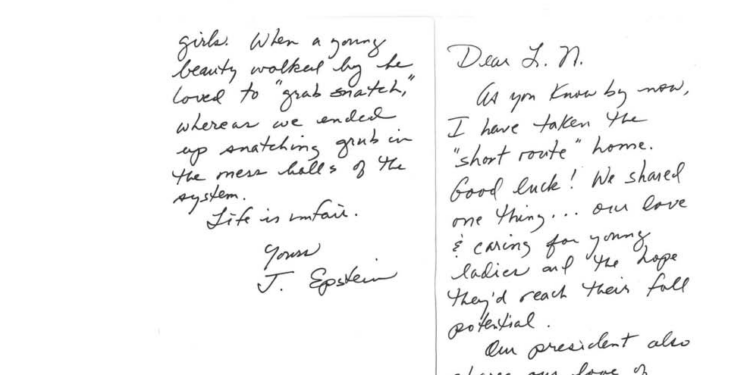 Dear L. N.
As you know by now,
I have taken the
"short route" home.
Good luck! We shared
one thing... our love
& caring for young
ladies and the hope
they'd reach their full
potential.
Our president also
shares our love of
girls. When a young
beauty walked by he
loved to "grab snatch,"
whereas we ended
up snatching grub in
the mess halls of the
system.
Life is unfair.
Yours
J. Epstein